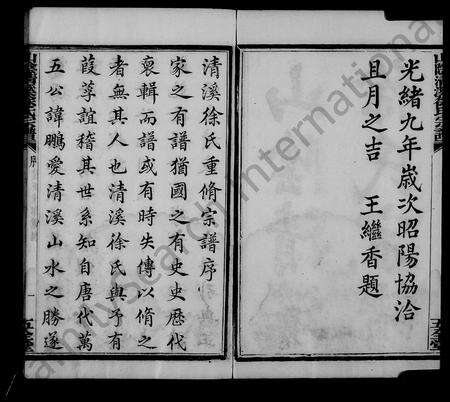 光緒九年歲次昭陽協洽
且月之吉　王繼香題
清溪徐氏重脩宗譜序
家之有譜猶國之有史史歷代
裒輯而譜或有時失傳以脩之
者無其人也清溪徐氏與予有
葭莩誼稽其世系知自唐代萬
五公諱鵬愛清溪山水之勝遂
序
一
FamilySearch International